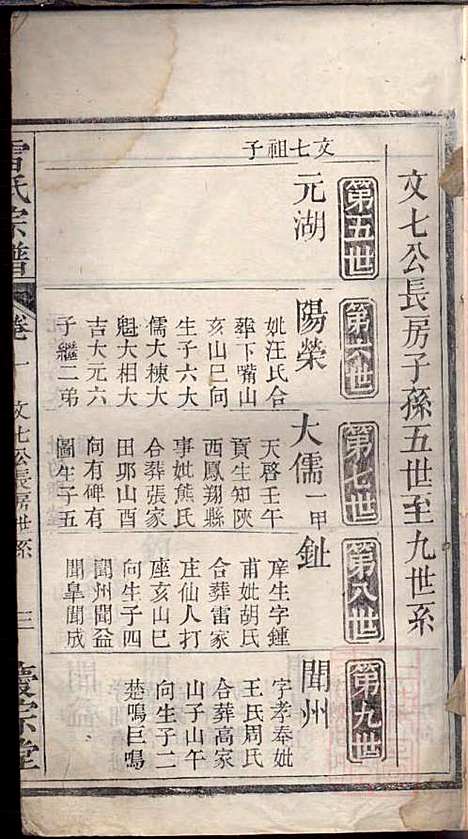 文七公長房子孫五世至九世系
第五世
第六世
第七世
第八世
第九世
文七祖子
元湖
陽榮
妣汪氏合
葬下嘴山
亥山巳向
生子六大
儒大棟大
魁大相大
吉大元六
子繼二弟
大儒一甲
天啓壬午
貢生知陝
西鳳翔縣
事妣熊氏
合葬張家
田卯山酉
向有碑有
圖生子五
鉦
庠生字鍾
甫妣胡氏
合葬雷家
庄仙人打
座亥山巳
向生子四
聞州聞益
聞臯聞成
聞州
字孝奉妣
王氏周氏
合葬高家
山子山午
向生子二
楚鳴巨鳴
雷氏宗譜
卷一
文七公長房世系
三
慶宗堂